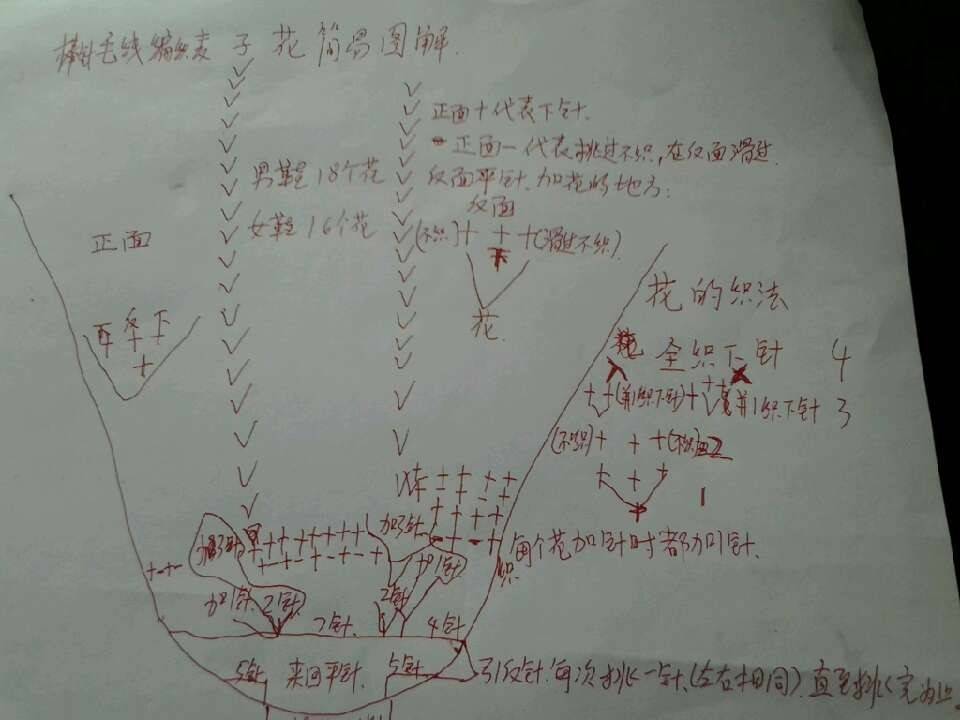 棒针毛线编织麦子花简易图解.
正面十代表下针.
正面一代表挑过不织,在反面滑过.
反面平针.加花的地方:
男鞋18个花
女鞋16个花
正面
反面
(不织)+ + +(滑过不织)
下
花
花的织法
全织下针 4
++(并1织下针)+ ++ 并1织下针 3
(不织)+ + +(不织) 2
+ + +
1
+ - + +
加3针
+-+-
每个花加针时都加1针.
加1针
加1针
2针
2针
7针
4针
5针
来回平针.
5针
引反针.每次挑一针.(左右相同).直至挑完为止.